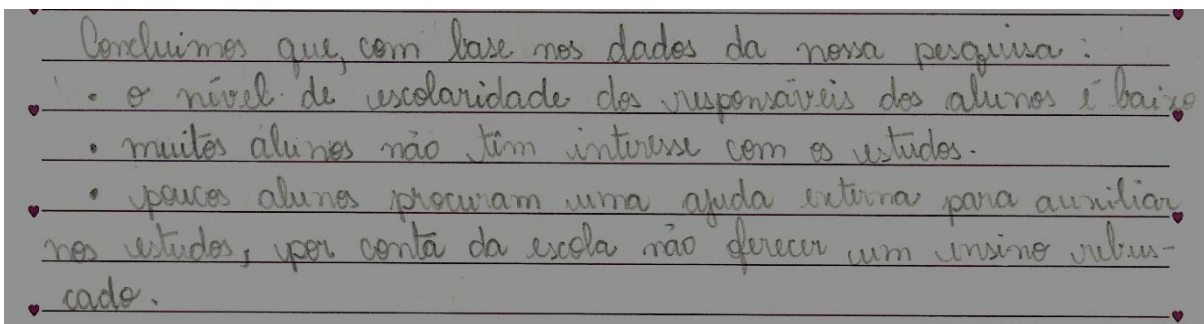 Concluimos que, com base nos dados da nossa pesquisa:
• o nível de escolaridade dos responsáveis dos alunos é baixo
• muitos alunos não têm interesse com os estudos.
• poucos alunos procuram uma ajuda externa para auxiliar
nos estudos, por conta da escola não oferecer um ensino rebus-
cado.